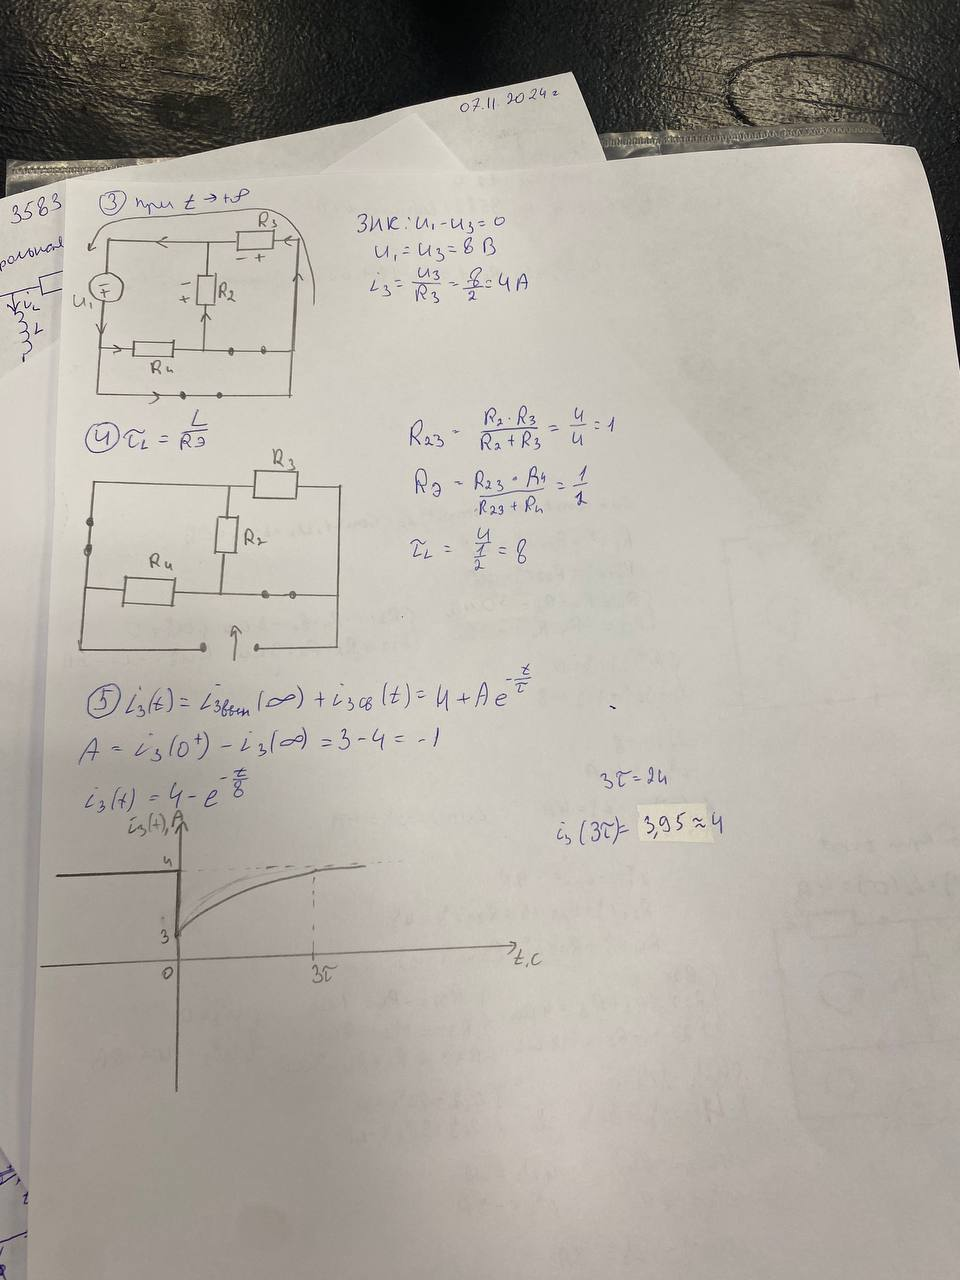 07.11.2024 г
3583
③ при t → +∞
R₃
U₁
R₂
R₄
ЗНК: U₁ - U₃ = 0
U₁ = U₃ = 8 В
i₃ = U₃/R₃ = 8/2 = 4 А
i_L
L
④ τ_L = L/Rэ
R₃
R₂
R₄
R₂₃ = R₂·R₃/(R₂+R₃) = 4/4 = 1
Rэ = R₂₃·R₄/(R₂₃+R₄) = 1/2
τ_L = 4/(1/2) = 8
⑤ i₃(t) = i₃вын(∞) + i₃св(t) = 4 + A e^(-t/τ)
A = i₃(0⁺) - i₃(∞) = 3 - 4 = -1
i₃(t) = 4 - e^(-t/8)
3τ = 24
i₃(3τ) = 3,95 ≈ 4
i₃(t), А
4
3
0
3τ
t, c